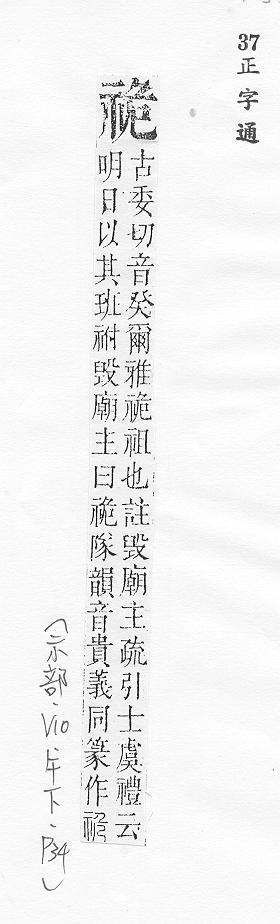 37正字通
祪
古委切音癸爾雅祪祖也註毀廟主疏引士虞禮云
明日以其班祔毀廟主曰祪隊韻音貴義同篆作祪
（示部，V10，午下，P34）